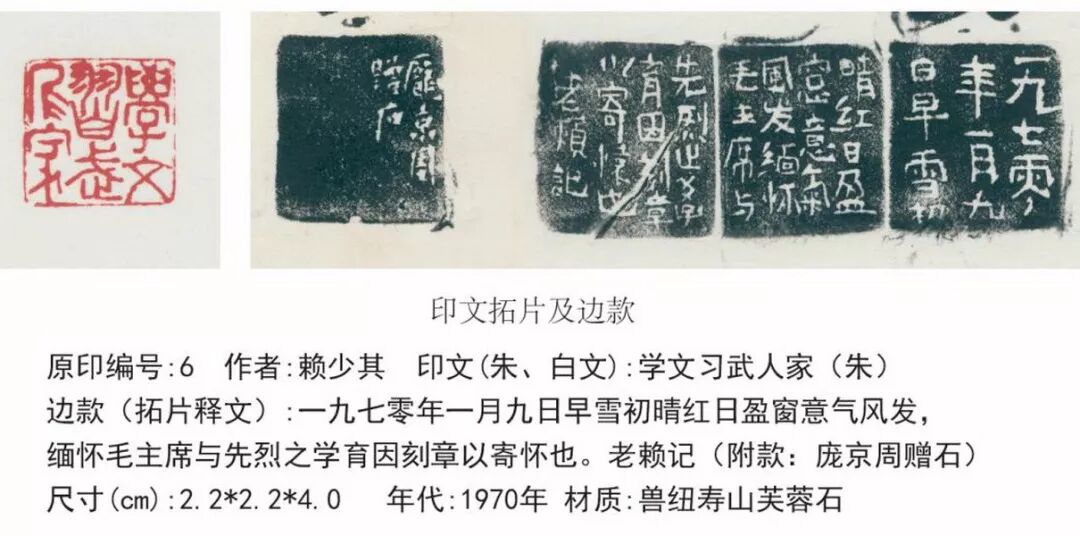 學文
習武
人家
一九七零
年一月九
日早雪初
晴红日盈
窗意气
風发缅怀
毛主席与
先烈之学
育因刻章
以寄怀也
老赖记
龐京周
贈石
印文拓片及边款
原印编号:6 作者:赖少其 印文(朱、白文):学文习武人家（朱）
边款（拓片释文）:一九七零年一月九日早雪初晴红日盈窗意气风发，
缅怀毛主席与先烈之学育因刻章以寄怀也。老赖记（附款：庞京周赠石）
尺寸(cm):2.2*2.2*4.0 年代:1970年 材质:兽纽寿山芙蓉石